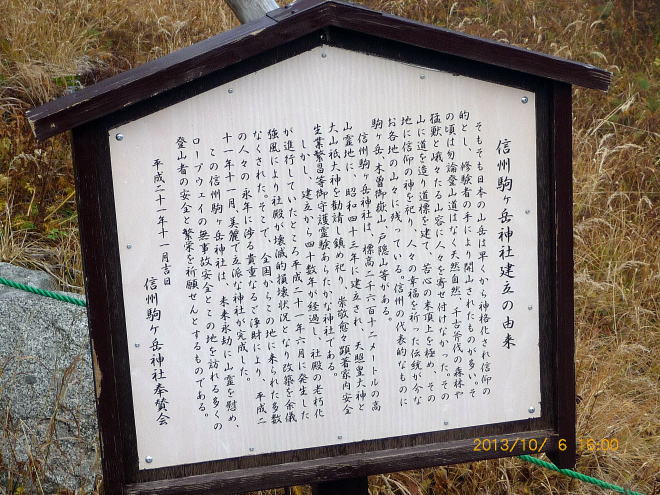 信州駒ヶ岳神社建立の由来
そもそも日本の山岳は早くから神格化され信仰の
的とし、修験者の手により開山されたものが多い。そ
の頃は勿論登山道はなく天然自然、千古斧伐の森林や
猛獣と峨々たる山容に人々を寄せ付けなかった。その
山に道を造り道標を建て、苦心の末頂上を極め、その
地に信仰の神を祀り、人々の幸福を祈った伝統が今な
お各地の山々に残っている。信州の代表的なものに
駒ヶ岳、木曽御嶽山、戸隠山等がある。
信州駒ヶ岳神社は、標高二千六百十二メートルの高
山霊地に、昭和四十三年に建立され、天照皇大神と
大山祇大神を勧請し鎮め祀り、崇敬愈々顕著家内安全
生業繁昌等御守護霊験あらたかな神社である。
しかし、建立から四十数年が経過し、社殿の老朽化
が進行していたところ平成二十一年六月に発生した
強風により社殿が壊滅的損壊状況となり改築を余儀
なくされた。そこで、全国からこの地に来られた多数
の人々の永年に渉る貴重なるご浄財により、平成二
十一年十一月、美麗で立派な神社が完成した。
この信州駒ヶ岳神社は、未来永劫に山霊を慰め、
ロープウェイの無事故安全とこの地を訪れる多くの
登山者の安全と繁栄を祈願せんとするものである。
平成二十一年十一月吉日
信州駒ヶ岳神社奉賛会
2013/10/ 6 16:00